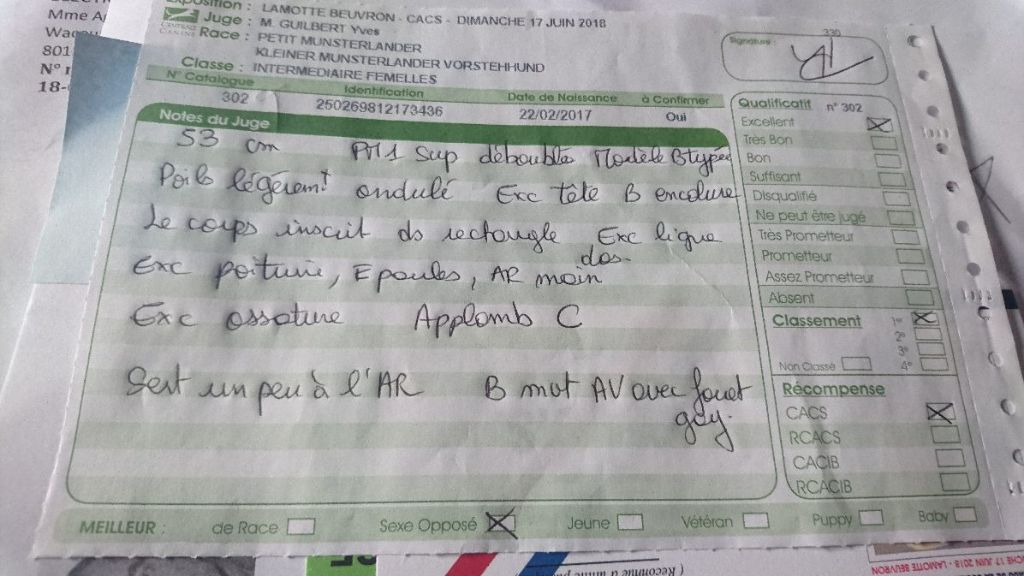 Exposition : LAMOTTE BEUVRON - CACS - DIMANCHE 17 JUIN 2018
Juge : M. GUILBERT Yves
Race : PETIT MUNSTERLANDER
KLEINER MUNSTERLANDER VORSTEHHUND
Classe : INTERMEDIAIRE FEMELLES
N° Catalogue Identification Date de Naissance à Confirmer
302 250269812173436 22/02/2017 Oui
Notes du Juge
53 cm PM1 Sup déboublés Modèle B typée
Poils légèremt ondulé Exc tête B encolure
Le corps inscrit ds rectangle Exc ligne
dos.
Exc poiturie, Epaules, AR main
Exc ossature Applomb C
Sert un peu à l'AR B mvt AV avec fouet
gay.
330
Signature :
Qualificatif n° 302
Excellent
Très Bon
Bon
Suffisant
Disqualifié
Ne peut être jugé
Très Prometteur
Prometteur
Assez Prometteur
Absent
Classement
1er
2e
3e
4e
Non Classé
Récompense
CACS
RCACS
CACIB
RCACIB
MEILLEUR : de Race Sexe Opposé Jeune Vétéran Puppy Baby
Mme
801
18-
CHE 17 JUIN 2018 - LAMOTTE BEUVRON